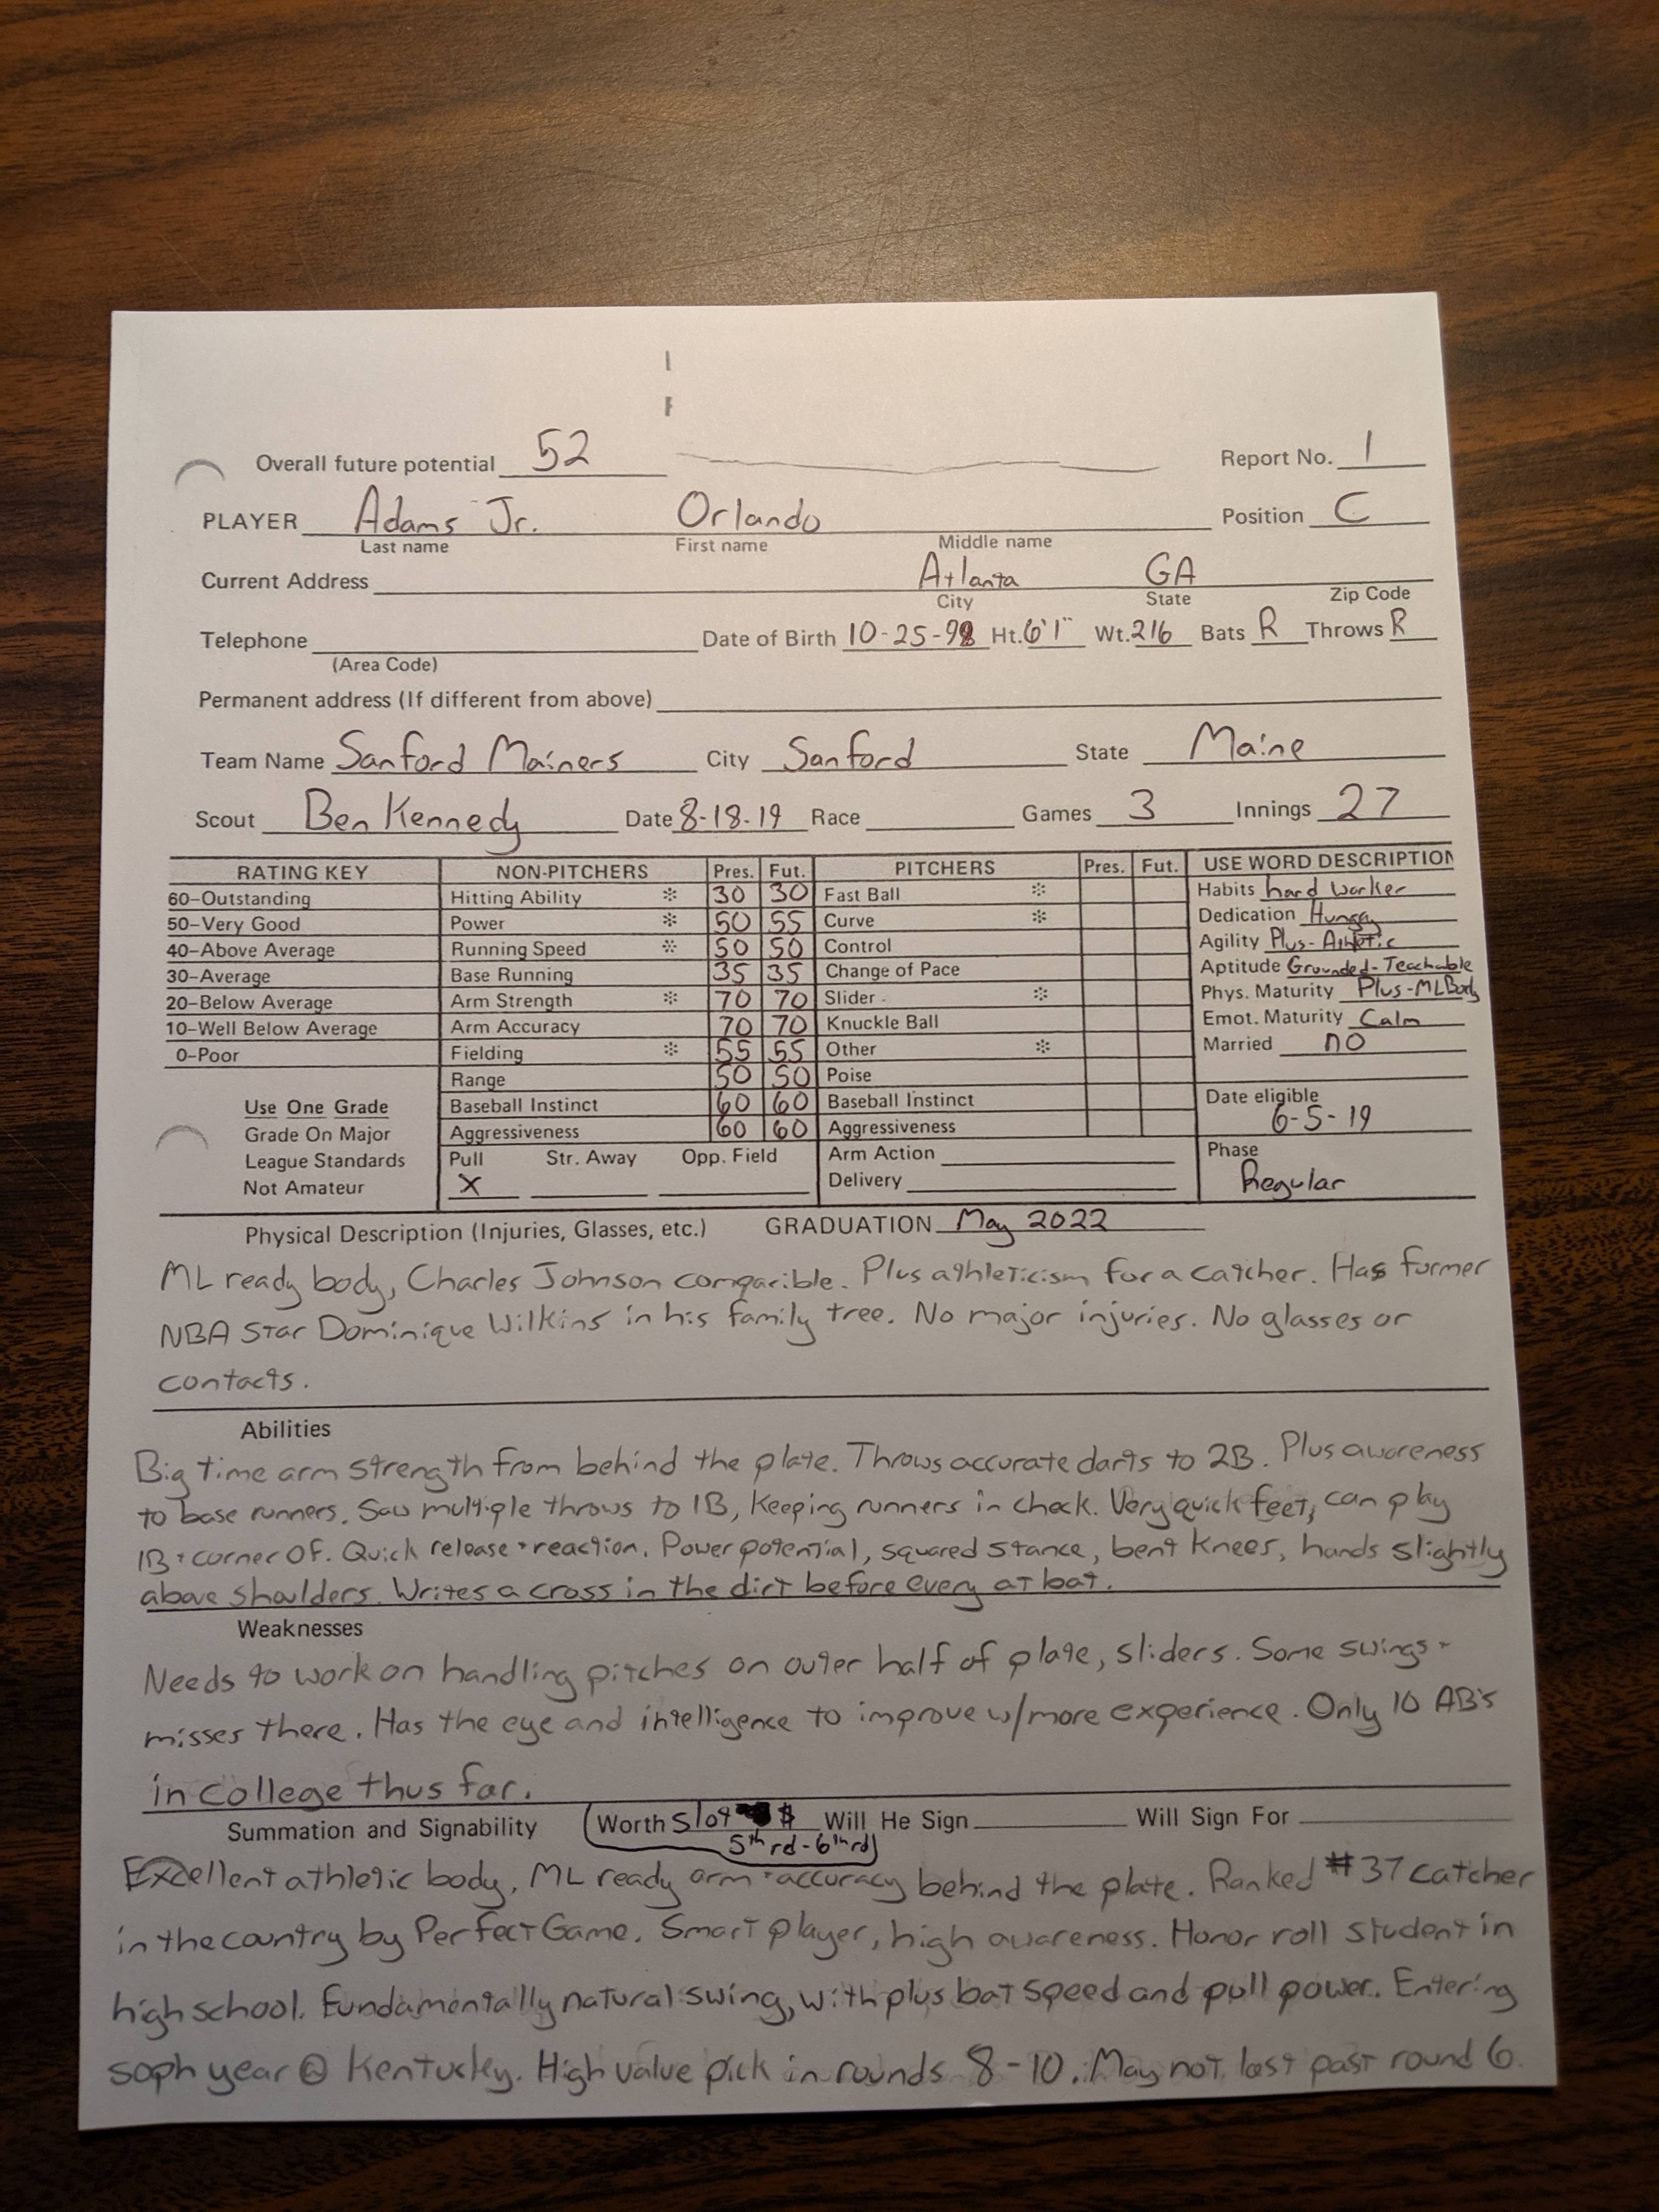 Overall future potential 52 Report No. 1
PLAYER Adams Jr. Orlando Position C
Last name First name Middle name
Current Address Atlanta GA
City State Zip Code
Telephone Date of Birth 10-25-98 Ht. 6'1" Wt. 216 Bats R Throws R
(Area Code)
Permanent address (If different from above)
Team Name Sanford Mainers City Sanford State Maine
Scout Ben Kennedy Date 8-18-19 Race Games 3 Innings 27
RATING KEY NON-PITCHERS Pres. Fut. PITCHERS Pres. Fut. USE WORD DESCRIPTION
60-Outstanding Hitting Ability * 30 30 Fast Ball * Habits hard worker
50-Very Good Power * 50 55 Curve * Dedication Hungry
40-Above Average Running Speed * 50 50 Control Agility Plus-Athletic
30-Average Base Running 35 35 Change of Pace Aptitude Grounded-Teachable
20-Below Average Arm Strength * 70 70 Slider * Phys. Maturity Plus-ML Body
10-Well Below Average Arm Accuracy 70 70 Knuckle Ball Emot. Maturity Calm
0-Poor Fielding * 55 55 Other * Married no
Range 50 50 Poise
Use One Grade Baseball Instinct 60 60 Baseball Instinct Date eligible
6-5-19
Grade On Major Aggressiveness 60 60 Aggressiveness
League Standards Pull Str. Away Opp. Field Arm Action Phase
Not Amateur X Delivery Regular
Physical Description (Injuries, Glasses, etc.) GRADUATION May 2022
ML ready body, Charles Johnson comparible. Plus athleticism for a catcher. Has former
NBA Star Dominique Wilkins in his family tree. No major injuries. No glasses or
contacts.
Abilities
Big time arm strength from behind the plate. Throws accurate darts to 2B. Plus awareness
to base runners. Saw multiple throws to 1B, keeping runners in check. Very quick feet, can play
1B + corner OF. Quick release + reaction. Power potential, squared stance, bent knees, hands slightly
above shoulders. Writes a cross in the dirt before every at bat.
Weaknesses
Needs to work on handling pitches on outer half of plate, sliders. Some swings +
misses there. Has the eye and intelligence to improve w/more experience. Only 10 AB's
in college thus far.
Summation and Signability Worth Slot $ Will He Sign Will Sign For
5th rd - 6th rd
Excellent athletic body, ML ready arm + accuracy behind the plate. Ranked #37 catcher
in the country by Perfect Game. Smart player, high awareness. Honor roll student in
high school. Fundamentally natural swing, with plus bat speed and pull power. Entering
soph year @ Kentucky. High value pick in rounds 8-10. May not last past round 6.